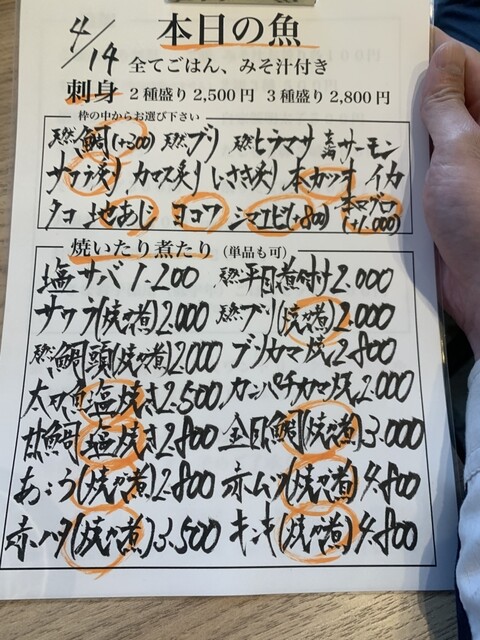 4/14
本日の魚
全てごはん、みそ汁付き
刺身 2種盛り2,500円 3種盛り2,800円
枠の中からお選び下さい
天然鯛(+300) 天然ブリ 天然ヒラマサ サーモン
サワラ炙り カマス炙り いさき炙り 本カツオ イカ
タコ 地あじ ヨコワ シマエビ(+800) 本マグロ(+1.000)
焼いたり煮たり(単品も可)
塩サバ1.200 天然平目煮付け2.000
サワラ(焼か煮)2,000 天然ブリ(焼か煮)2.000
天然鯛頭(焼か煮)2.000 ブリカマ焼2.800
太刀魚塩焼き2.500 カンパチカマ焼2.000
甘鯛塩焼き2.800 金目鯛(焼か煮)3.000
あこう(焼か煮)2.800 赤ムツ(焼か煮)4.800
赤ハタ(焼か煮)3.500 キンキ(焼か煮)4.800